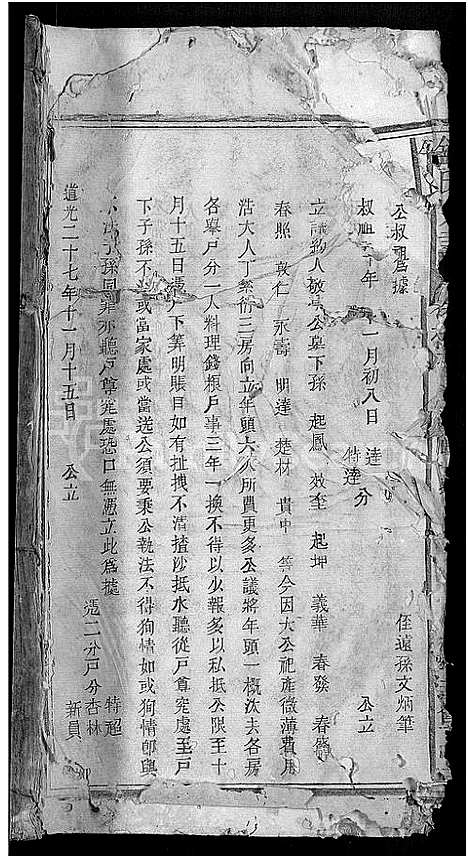 公叔祖爲據
叔祖 年 十一月初八日 達 特達 分 侄遠孫文炳筆 公立
立議約人敬 公羣下孫 起鳳 效奎 起坤 義華 春發 春
春照 敦仁 永壽 明達 楚材 貴中 等今因大公祀產微薄費用
浩大人丁繁衍三房向立年頭六人所費更多公議將年頭一概汰去各房
各舉戶分一人料理錢粮戶事三年一換不得以少報多以私抵公限至十
月十五日 戶下筭明賬目如有扯拽不清揸沙抵水聽從戶尊究處至戶
下子孫不 或當家處或當送公須要秉公執法不得狥情如或狥情 與
子孫同 亦聽戶尊究處恐口無憑立此爲據
憑二分戶分 特超 杏林 新員
道光二十七年十一月十五日 公立